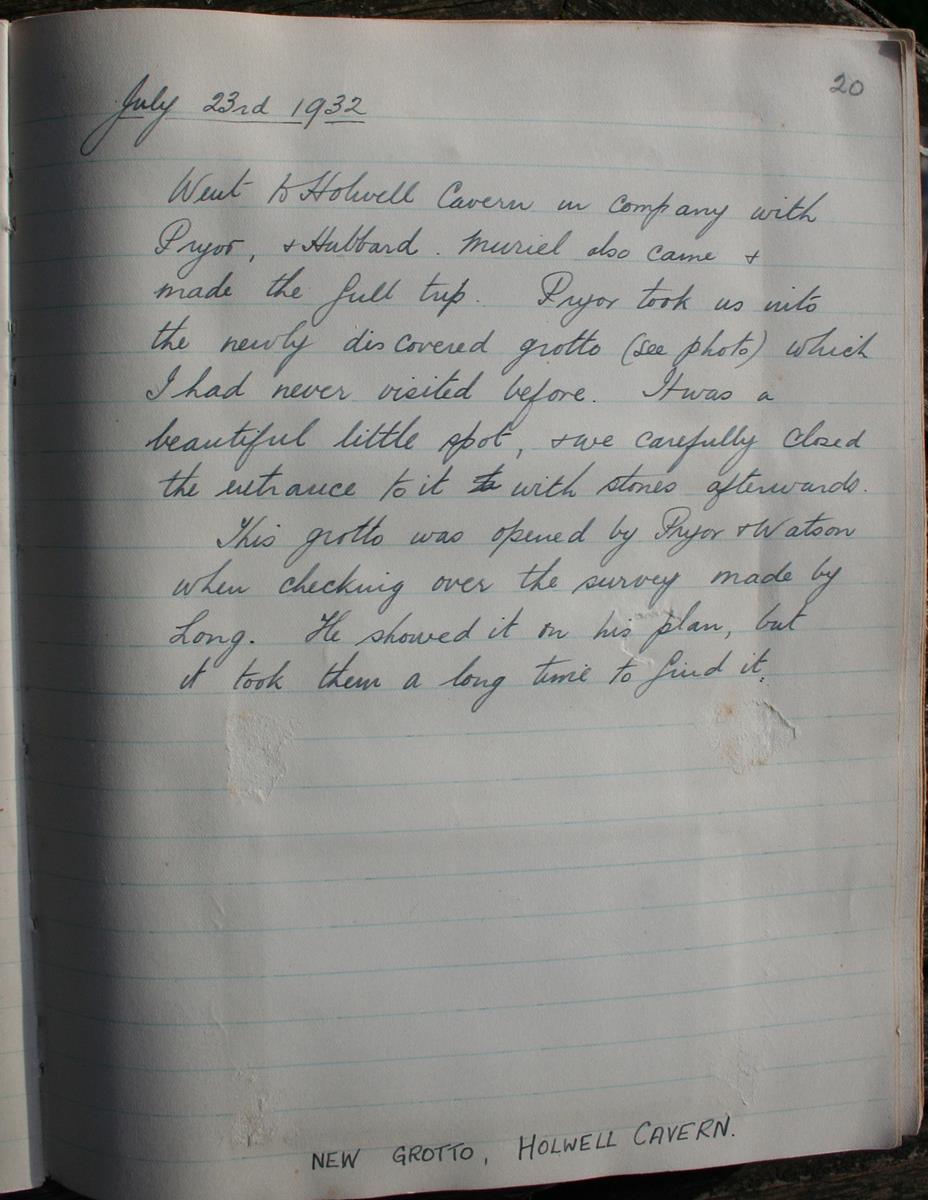 20
July 23rd 1932
Went to Holwell Cavern in company with
Pryor, & Hubbard. Muriel also came &
made the full trip. Pryor took us into
the newly discovered grotto (see photo) which
I had never visited before. It was a
beautiful little spot, & we carefully closed
the entrance to it to with stones afterwards.
This grotto was opened by Pryor & Watson
when checking over the survey made by
Long. He showed it on his plan, but
it took them a long time to find it.
NEW GROTTO, HOLWELL CAVERN.